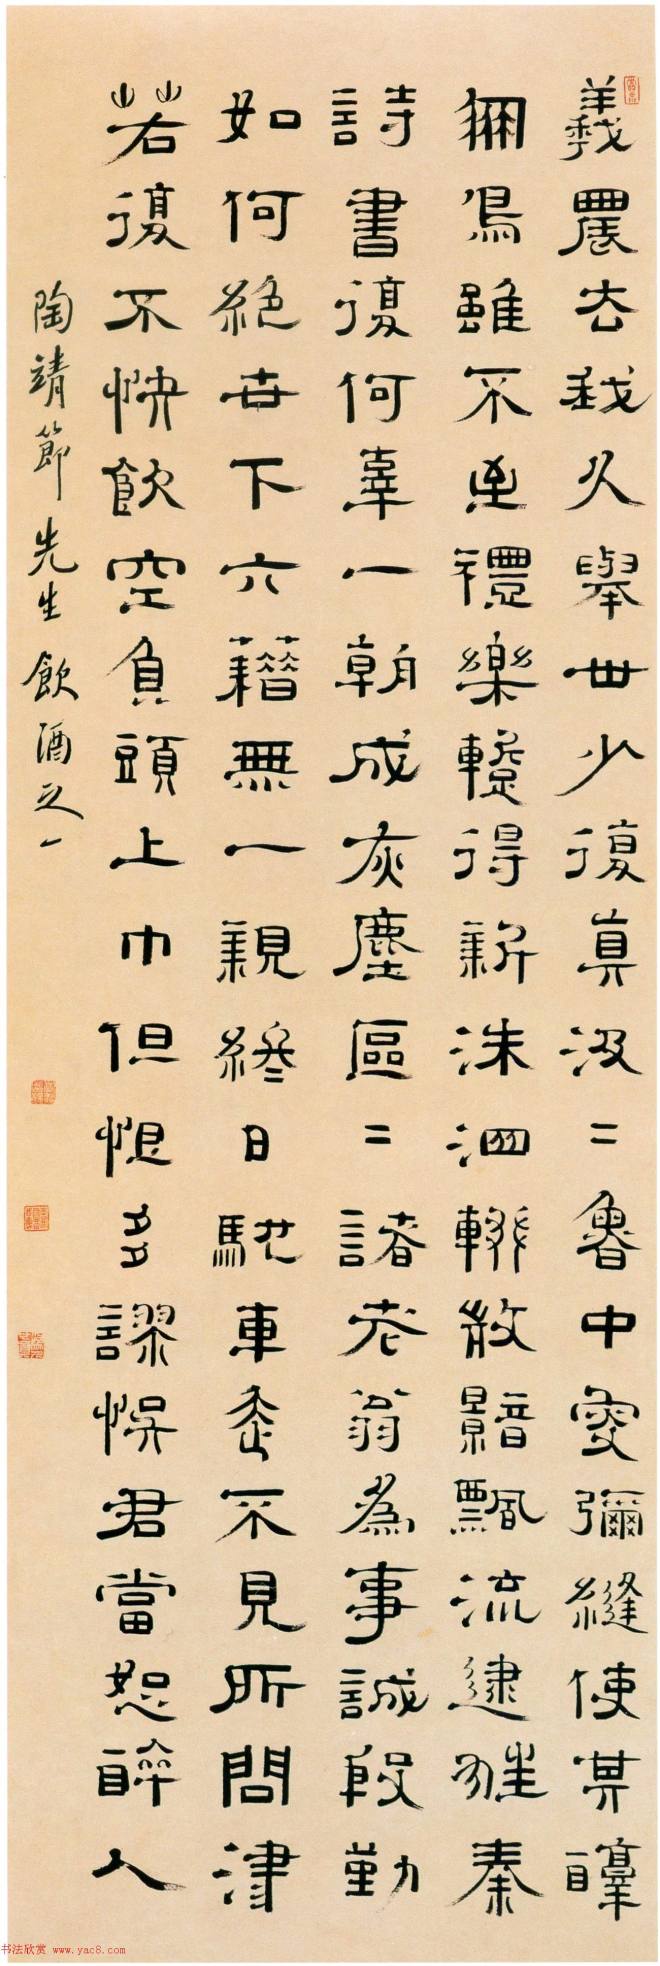 羲農去我久舉世少復真汲二魯中叟彌縫使其
鳥雖不至禮樂蹔得新洙泗輟散飄流逮狂秦
詩書復何辠一朝成灰塵區二諸老翁為事誠殷勤
如何絕世下六藉無一親終日馳車走不見所問津
若復不快飲空負頭上巾但恨多謬悮君當恕醉人
陶靖節先生飲酒之一
书法欣赏 www.yac8.com